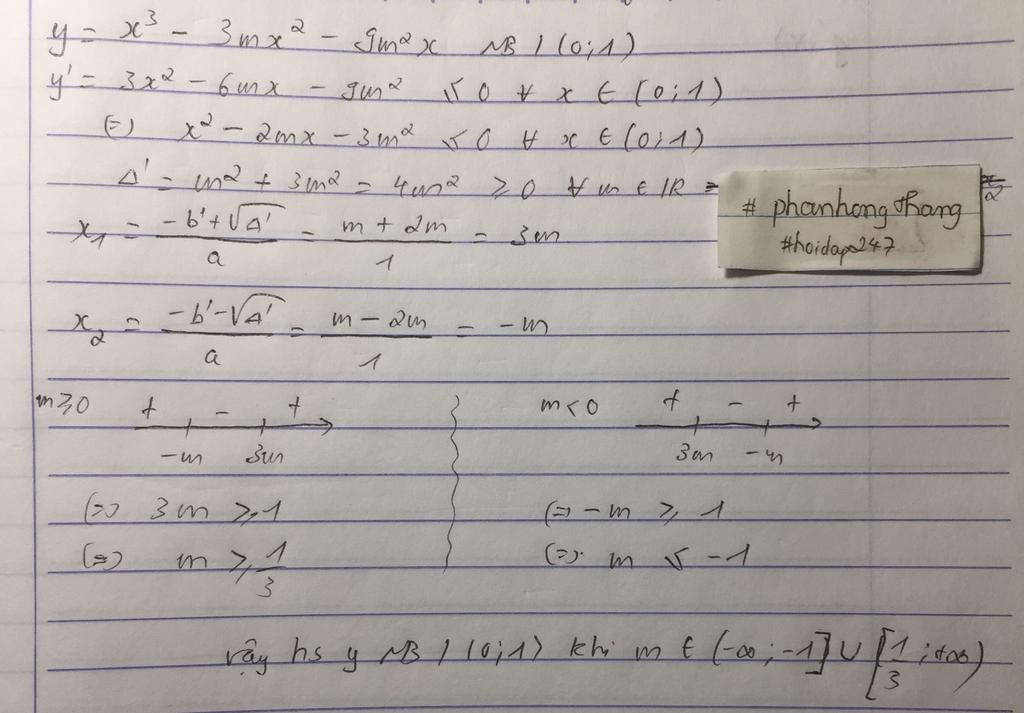 y = x³ - 3mx² - 9m²x NB / (0;1)
y' = 3x² - 6mx - 9m² ≤ 0 ∀ x ∈ (0;1)
(=) x² - 2mx - 3m² ≤ 0 ∀ x ∈ (0;1)
Δ' = m² + 3m² = 4m² ≥ 0 ∀ m ∈ IR
# phanhongthang
#hoidap247
x₁ = (-b'+√Δ')/a = (m + 2m)/1 = 3m
x₂ = (-b'-√Δ')/a = (m - 2m)/1 = -m
m ≥ 0 + - +
-m 3m
(=) 3m ≥ 1
(=) m ≥ 1/3
m < 0 + - +
3m -m
(=) -m ≥ 1
(=) m ≤ -1
vậy hs y NB / (0;1) khi m ∈ (-∞;-1] ∪ [1/3;+∞)